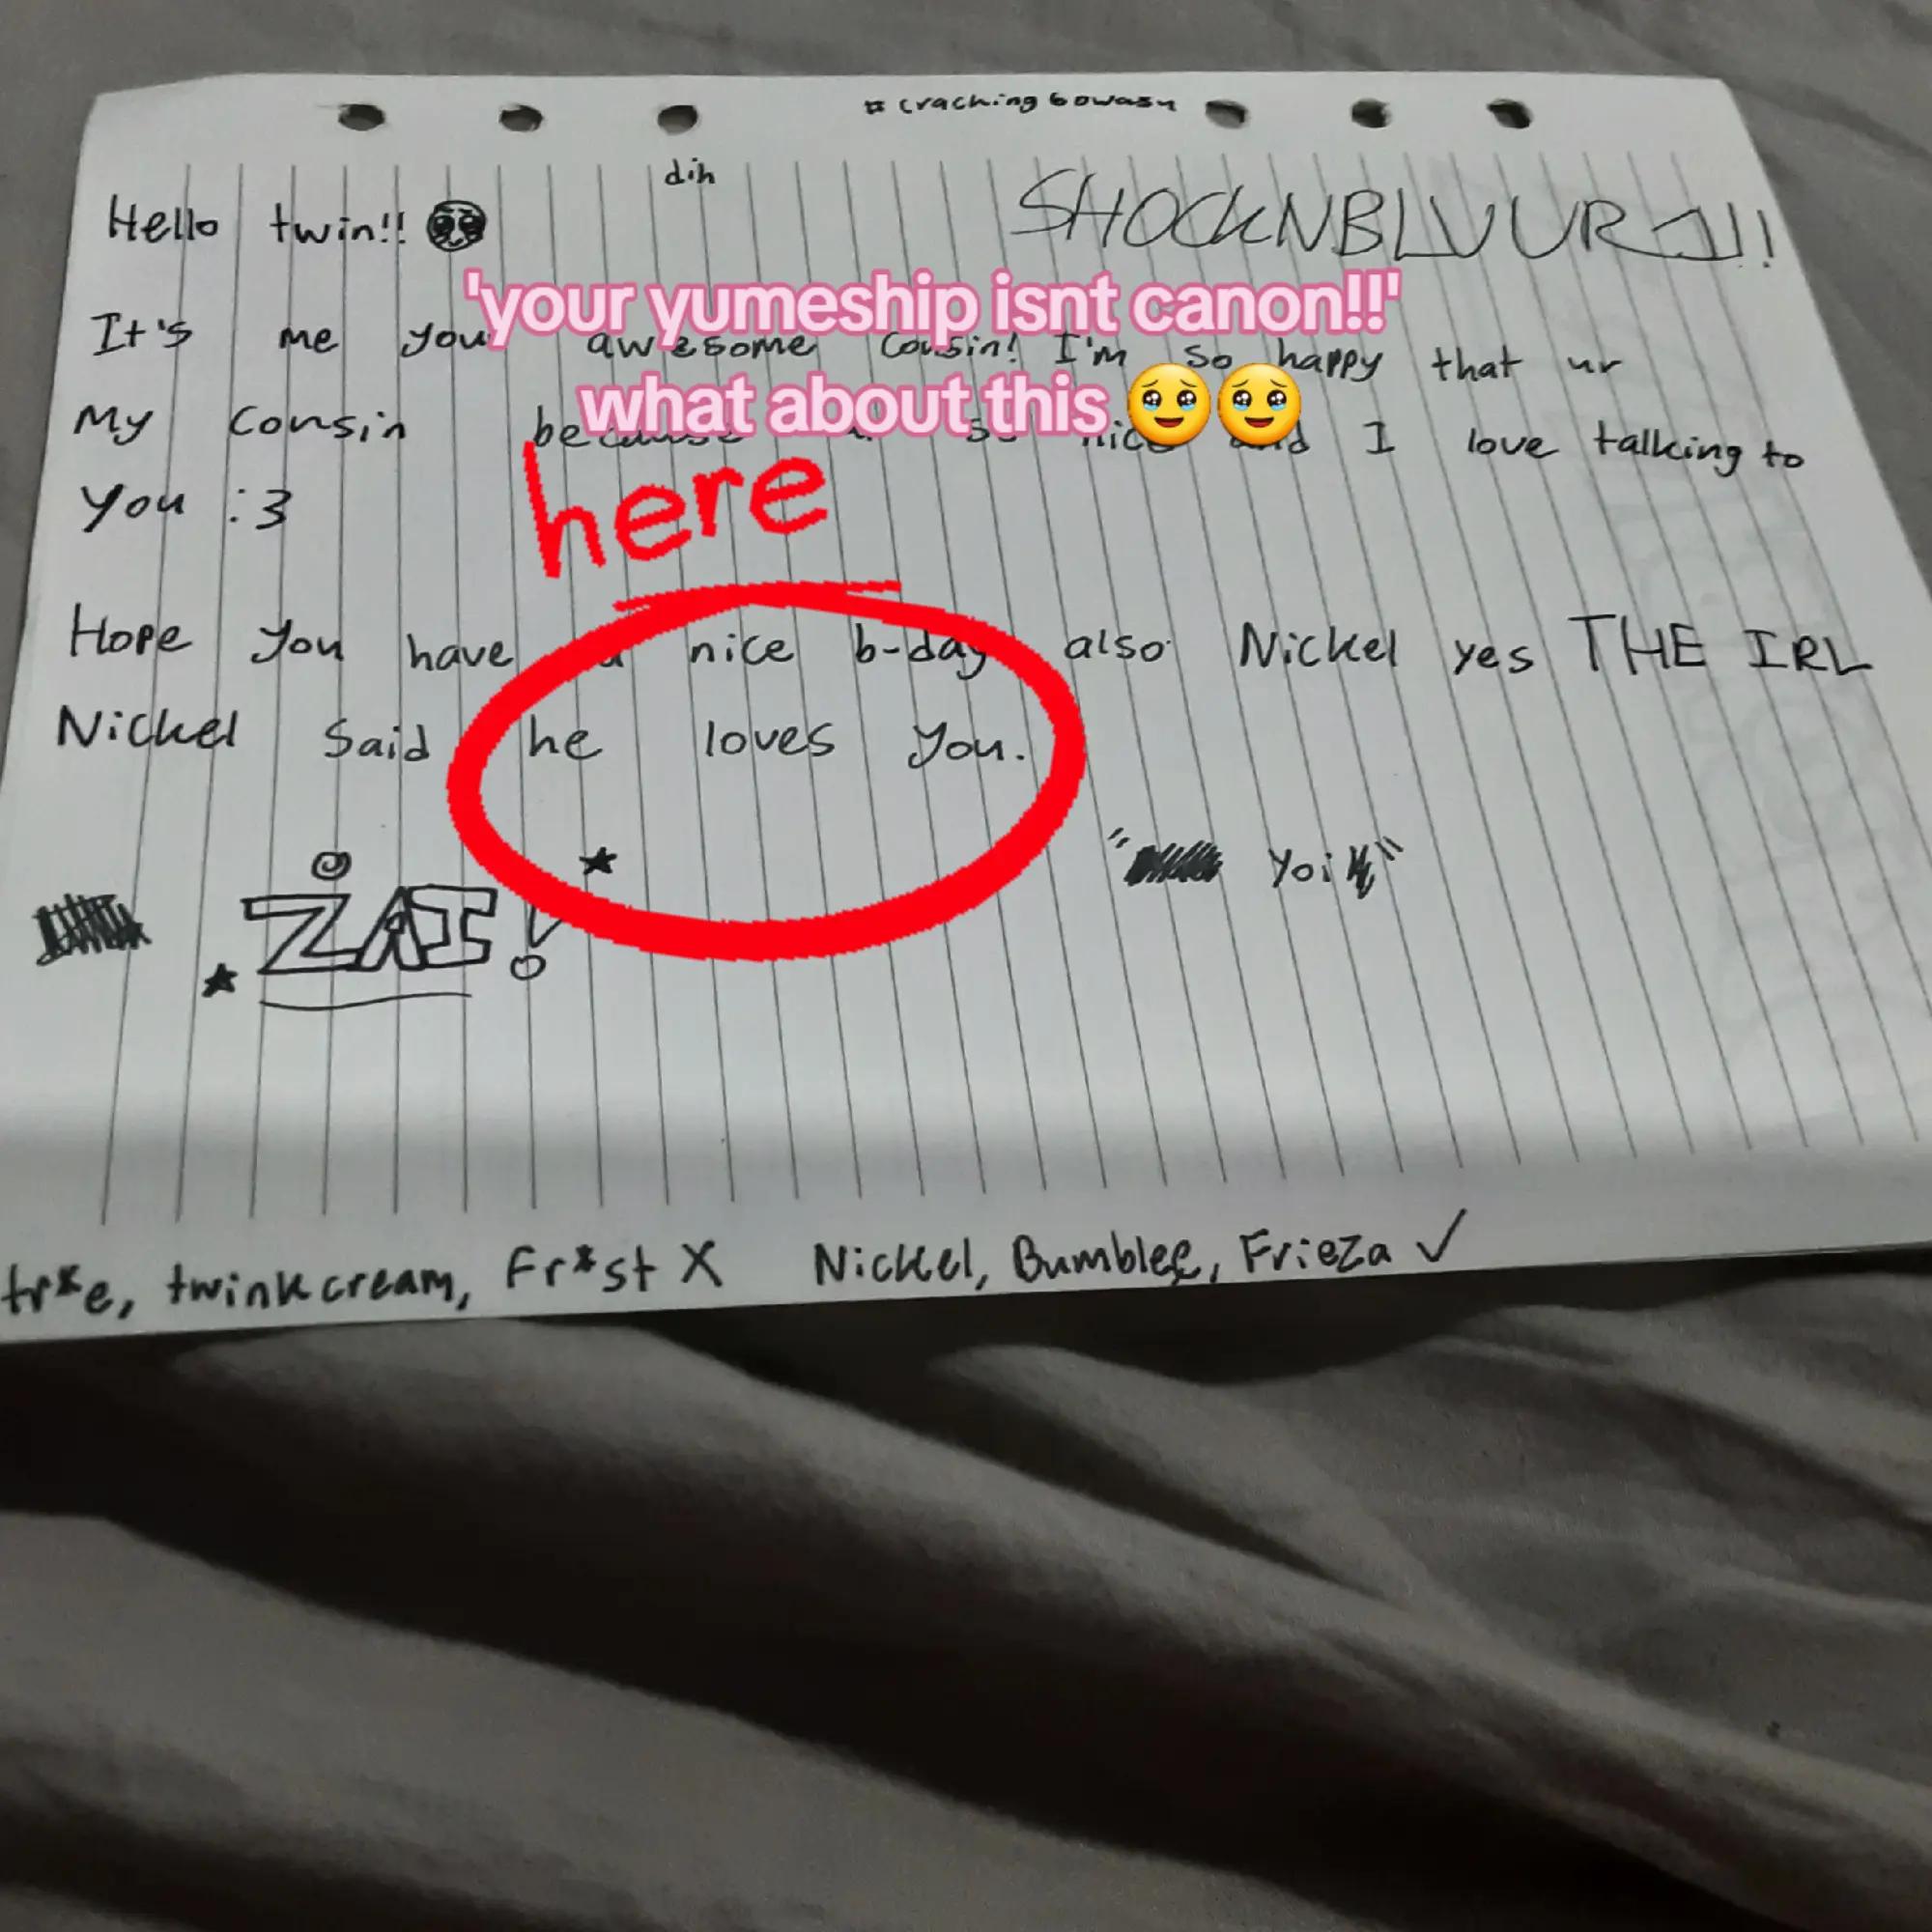 # craching bowasn
dih
Hello twin!!
SHOCKNBLUUR JJ!!
'your yumeship isnt canon!!'
It's me you awesome cousin! I'm so happy that ur
what about this 🥹🥹
My cousin because so nice and I love talking to
here
You :3
Hope you have a nice b-day also Nickel yes THE IRL
Nickel said he loves you.
" Yoi "
ZAI!
tr*e, twinkcream, Fr*st X Nickel, Bumblee, Frieza ✓